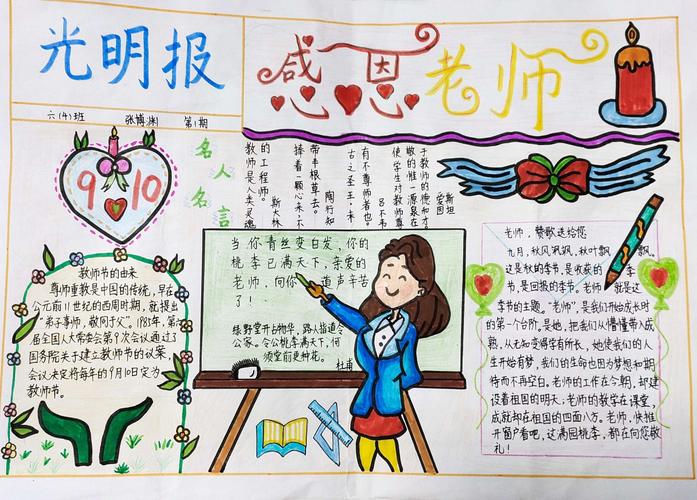 光明报
感恩老师
六(4)班 张博渊 第1期
9 10
名人名言
教师是人类灵魂
的工程师。
斯大林
捧着一颗心来,不
带半根草去。
陶行知
古之圣王,未
有不尊师者也。
吕不韦
使学生对教师尊
敬的惟一源泉在
于教师的德和才。
爱因斯坦
教师节的由来
尊师重教是中国的传统,早在
公元前11世纪的西周时期,就提出
“弟子事师,敬同于父”。1985年,第六
届全国人大常委会第9次会议通过了
国务院关于建立教师节的议案,
会议决定将每年的9月10日定为
教师节。
当你青丝变白发,你的
桃李已满天下,亲爱的
老师,向你 道声辛苦
了!
绿野堂开占物华,路人指道令
公家。令公桃李满天下,何
须堂前更种花。
杜甫
老师,赞歌送给您
九月,秋风飒飒,秋叶飘飘。
这是秋的季节,是收获的季
节,是回报的季节。老师 就是这
季节的主题。“老师”,是我们开始成长时
的第一个台阶。是她,把我们从懵懂带入成
熟,从无知变得学有所长,她使我们的人
生开始有梦,我们的生命也因为梦想和期
待而不再空白。老师的工作在今朝,却建
设着祖国的明天;老师的教学在课堂,
成就却在祖国的四面八方。老师,快推
开窗户看吧,这满园桃李,都在向您敬
礼!